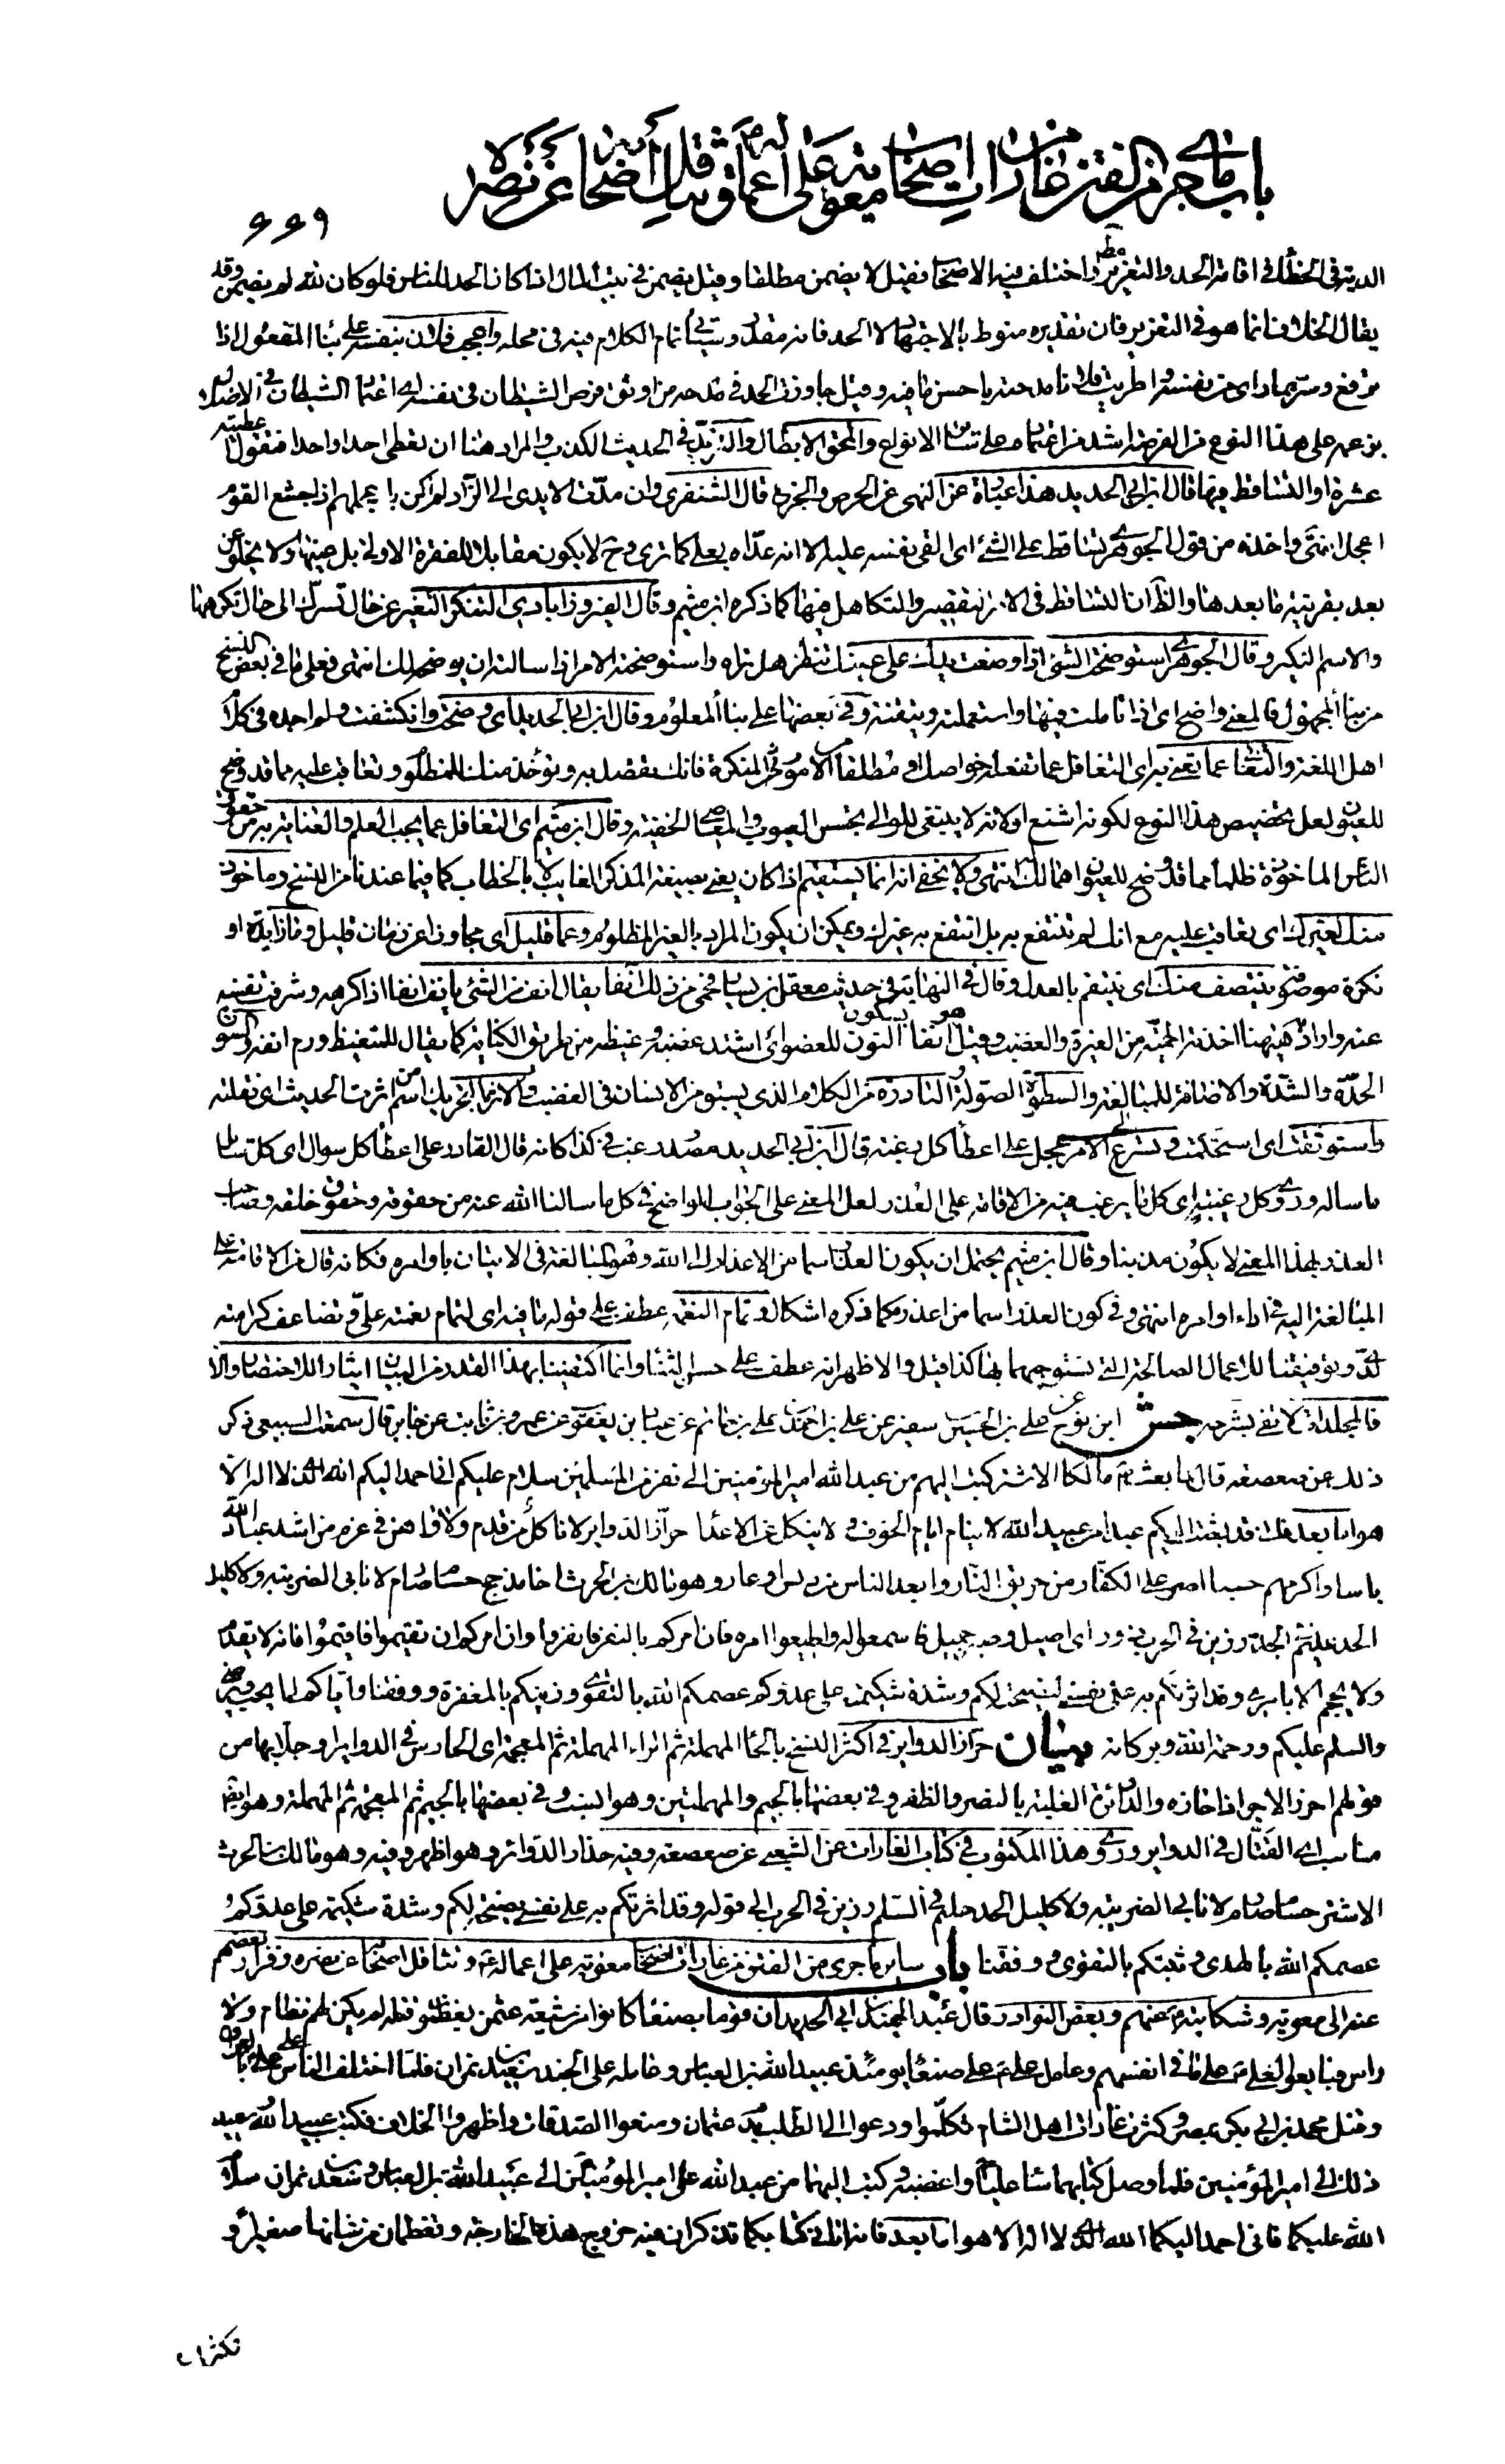 باب ما جرى من الفتن من غارات اصحاب معوية على اعماله ع وتثاقل اصحابه عن نصره
۶۶۹
الدية في الخطأ في اقامة الحد والتعزير واختلف فيه الاصحاب فقيل لا يضمن مطلقا وقيل يضمن في بيت المال اذا كان الحد للناس فلو كان لله لم يضمن وقد
يقال الخلاف انما هو في التعزير فان تقديره منوط بالاجتهاد لا الحد فانه مقدر وسيأتي تمام الكلام فيه في محله واعجب فلان بنفسه على بناء المفعول اذا
ترفع وسر بما راى من نفسه واطريت فلانا مدحته باحسن ما فيه وقيل جاوزت الحد في مدحه من اوثق فرص الشيطان في نفسه اي اعتماد الشيطان في الاضلال
بزعمه على هذا النوع من الفرصة اشد من اعتماده على سائر الانواع والمحق الابطال والتزيد في الحديث الكذب والمراد هنا ان تعطي احدا واحدا فتقول اعطيته
عشرة او التساقط فيها قال ابن ابي الحديد هذا عبارة عن النهي عن الحرص والجزع قال الشنفرى وان مدت الايدي الى الزاد لم اكن باعجلهم اذ اجشع القوم
اعجل انتهى واخذه من قول الجوهري تساقط على الشئ اي القى نفسه عليه الا انه عداه بعلى كما ترى وح لا يكون مقابلا للفقرة الاولى بل عينها ولا يخلو من
بعد بقرينة ما بعدها والظ ان التساقط في الامر تقصير والتكاهل فيها كما ذكره ابن ميثم وقال الفيروزابادي التنكر التغير عن حال تسرك الى حال تكرهها
والاسم النكير وقال الجوهري استوضحت الشئ اذا وضعت يدك على عينك تنظر هل تراه واستوضحته الامر اذا سالته ان يوضحه لك انتهى فعلى ما في بعض النسخ
من بناء المجهول فالمعنى واضح اي اذا تاملت فيها واستعملت وتيقنته وفي بعضها على بناء المعلوم وقال ابن ابي الحديد اي وضحت وانكشفت ولم اجده في كلام
اهل اللغة والتغابي عما تعنى به اي التغافل عما تفعله خواصك او مطلقا من الامور المنكرة فانك تقصد به وتؤخذ منك للمظلوم وتعاقب عليه مما قد وضح
للعيون لعل تخصيص هذا النوع لكونه اشنع او لانه لا ينبغي للوالي تجسس العيوب والمعاصي الخفية وقال ابن ميثم اي التغافل عما يجب العلم والعناية به من حقوق
الناس الماخوذة ظلما مما قد وضح للعيون اهمالك انتهى ولا يخفى انه انما يستقيم اذا كان يعنى بصيغة المذكر الغايب لا بالخطاب كما فيما عندنا من النسخ وماخوذ
منك لغيرك اي تعاقب عليه مع انك لم تنتفع به بل انتفع به غيرك ويمكن ان يكون المراد بالغير المظلوم وعما قليل اي مجاوزا عن زمان قليل وما زايدة او
نكرة موصوفة ينتصف منك اي ينتقم بالعدل وقال في النهاية في حديث معقل بن يسار فحمي من ذلك انفا يقال انف من الشئ يانف انفا اذا كرهه وشرفت نفسه
عنه واراد به هيهنا اخذته الحمية من الغيرة والغضب وقيل هو انفا بسكون النون للعضو اي اشتد غضبه وغيظه من طريق الكناية كما يقال للمتغيظ ورم انفه والسورة
الحدة والشدة والاضافة للمبالغة والسطوة الصولة والبادرة من الكلام الذي يسبق من الانسان في الغضب والاثر بالتحريك اسم من اثرت الحديث اي نقلته
واستوثقت اي استحكمت وتسرع الى الامر عجل على اعطاء كل رغبة قال ابن ابي الحديد مصدر رغب في كذا كانه قال القادر على اعطاء كل سؤال اي كل سائل
ما ساله وروي وكل رغيبة اي كل ما يرغب فيه من الاقامة على العذر لعل المعنى على الجواب الواضح في كل ما سالنا الله عنه من حقوقه وحقوق خلقه وصاحب
العذر بهذا المعنى لا يكون مذنبا وقال ابن ميثم يحتمل ان يكون العذر اسما من الاعذار الى الله وهو المبالغة في الاتيان باوامره فكانه قال من الاقامة على
المبالغة اليه في اداء اوامره انتهى وفي كون العذر اسما من اعذر كما ذكره اشكال وتمام النعمة عطف على قوله ما فيه اي لتمام نعمته علي وتضاعف كرامته
لدي وتوفيقنا للاعمال الصالحة التي نستوجبهما بها كذا قيل والاظهر انه عطف على حسن الثناء وانما اكتفينا بهذا القدر من البيان ايثارا للاختصار والا
فالمجلدات لا تفي بشرحه جش ابن نوح عن علي بن الحسين بن سفين عن علي بن احمد بن علي بن حاتم عن عباد بن يعقوب عن عمرو بن ثابت عن جابر قال سمعت السبيعي ذكر
ذلك عن صعصعة قال لما بعث ع مالكا الاشتر كتب اليهم من عبد الله امير المؤمنين الى نفر من المسلمين سلام عليكم اني احمد اليكم الله الذي لا اله الا
هو اما بعد فاني قد بعثت اليكم عبدا من عبيد الله لا ينام ايام الخوف ولا ينكل عن الاعداء حراز الدواير لا ناكل من قدم ولا واهن في عزم من اشد عباد الله
باسا واكرمهم حسبا اضر على الكفار من حريق النار وابعد الناس من دنس او عار وهو مالك بن الحرث اخا مذحج حسام صارم لا نابي الضريبة ولا كليل
الحد عليم الجد رزين في الحرب ذو راي اصيل وصبر جميل فاسمعوا له واطيعوا امره فان امركم بالنفر فانفروا وان امركم ان تقيموا فاقيموا فانه لا يقدم
ولا يحجم الا بامري وقد اثرتكم به على نفسي لنصيحته لكم وشدة شكيمته على عدوكم عصمكم الله بالتقوى وزينكم بالمغفرة ووفقنا واياكم لما يحب ويرضى
والسلم عليكم ورحمة الله وبركاته بيان حراز الدواير في اكثر النسخ بالحاء المهملة ثم الراء المهملة ثم المعجمة اي الحارس في الدواير او جلابها من
قولهم احرز الاجر اذا حازه والدائرة الغلبة بالنصر والظفر وفي بعضها بالجيم والمهملتين وهو انسب وفي بعضها بالجيم ثم المعجمة ثم المهملة وهو ايضا
مناسب اي القتال في الدواير وروي هذا المكتوب في كتاب الغارات عن الشعبي عن صعصعة وفيه حذار الدوائر وهو اظهر وفيه وهو مالك بن الحرث
الاشتر حسام صارم لا نابي الضريبة ولا كليل الحد حليم في السلم رزين في الحرب الى قوله وقد اثرتكم به على نفسي بنصيحته لكم وشدة شكيمته على عدوكم
عصمكم الله بالهدى وثبتكم بالتقوى ووفقنا باب ساير ما جرى من الفتن من غارات اصحاب معوية على اعماله ع وتثاقل اصحابه عن نصره وفرار بعضهم
عنه الى معوية وشكايته ع عنهم وبعض النوادر قال عبد الحميد بن ابي الحديد ان قوما بصنعاء كانوا من شيعة عثمن يعظمون قتله لم يكن لهم نظام ولا
راس فبايعوا لعلي ع على ما في انفسهم وعامل علي ع على صنعاء يومئذ عبيد الله بن العباس وعامله على الجند سعيد بن نمران فلما اختلف الناس على علي ع بالعراق
وقتل محمد بن ابي بكر بمصر وكثرت غارات اهل الشام تكلموا ودعوا الى الطلب بدم عثمان ومنعوا الصدقات واظهروا الخلاف فكتب عبيد الله وسعيد
ذلك الى امير المؤمنين فلما وصل كتابهما ساء عليا ع واغضبه وكتب اليهما من عبد الله علي امير المؤمنين الى عبيد الله بن العباس وسعيد بن نمران سلام
الله عليكما فاني احمد اليكما الله الذي لا اله الا هو اما بعد فانه اتاني كتابكما تذكران فيه خروج هذه الخارجة وتعظمان من شانها صغيرا و
تكثران